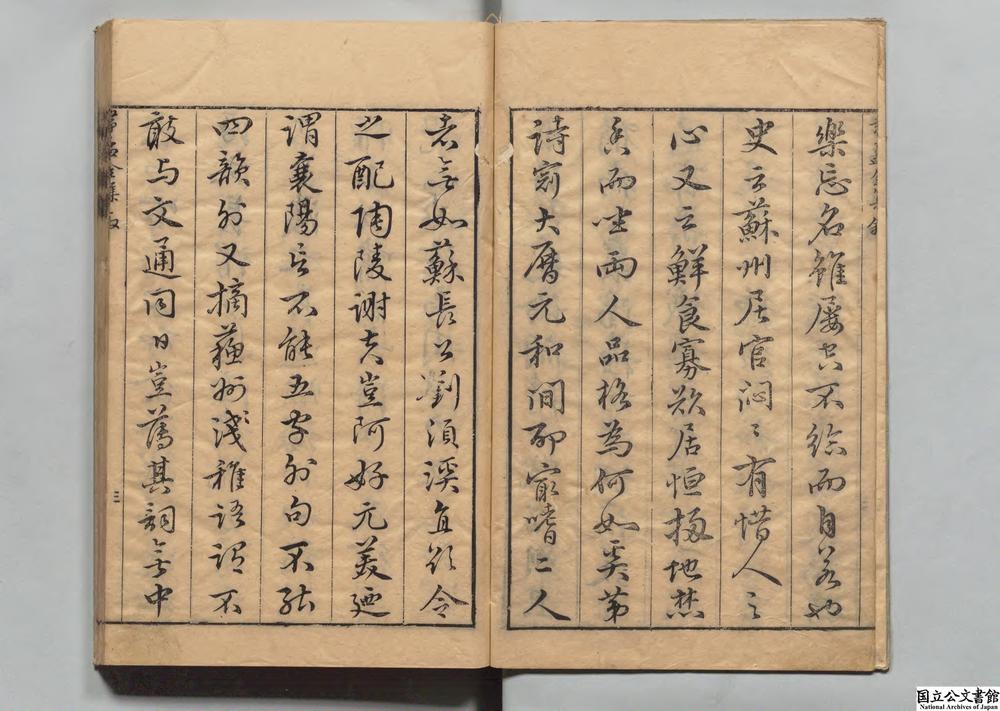 樂忘名雖屢空不給而自若也
史云蘇州居官悶〻有惜人之
心又云鮮食寡欲居恒掃地焚
香而坐兩人品格為何如矣第
詩寂大曆元和間耶嗜二人
者無如蘇長公劉須溪直欲令
之配陶陵謝夫豈阿好元美廼
謂襄陽旨不能五字外句不能
四韻外又摘蘇州淺稚語謂不
敢与文通同日豈薄其詞無中
三
国立公文書館
National Archives of Japan